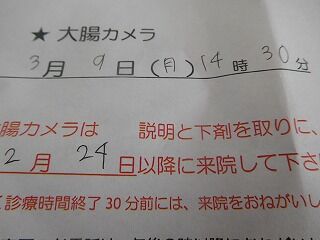 ★ 大腸カメラ
3月 9日(月)14時30分
腸カメラは 説明と下剤を取りに、
2月24日以降に来院して下さ
診療時間終了30分前には、来院をおねがいし